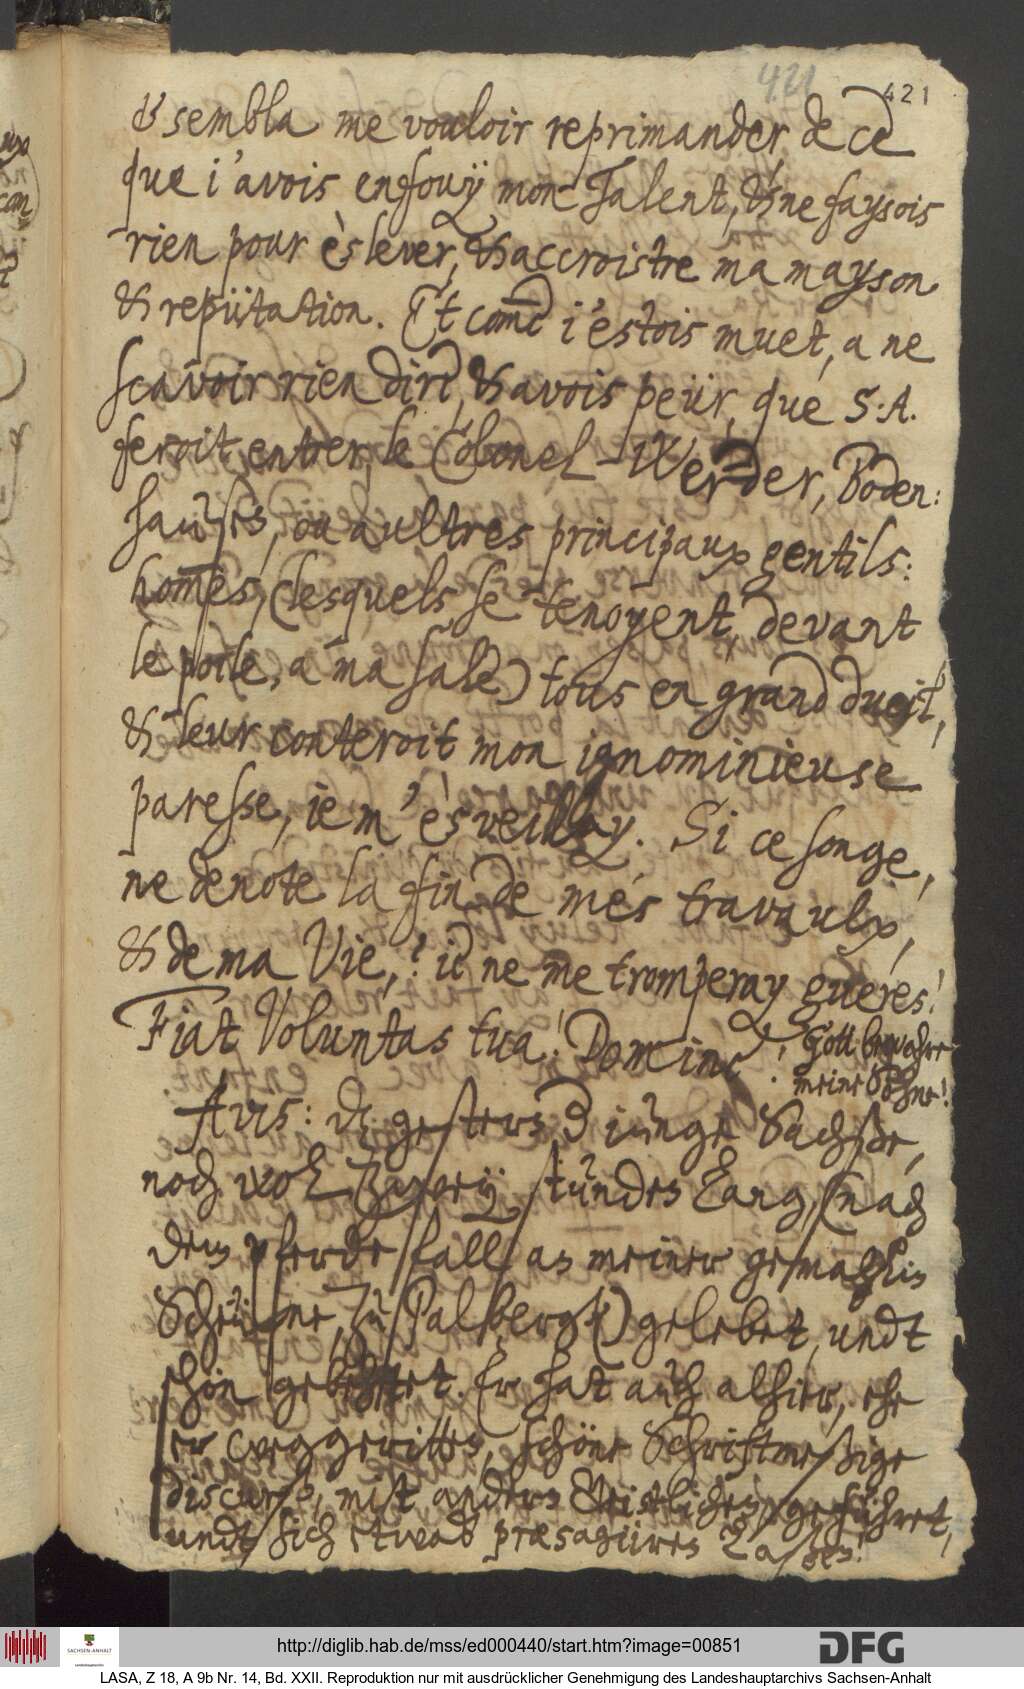 421
421
& sembla me vouloir reprimander, de ce
que i'avois enfouÿ mon Talent, & ne faysois
rien pour èslever, & accroistre ma mayson
& repütation. Et com̄e i'estois muet, a ne
scavoir rien dire, & avois peür, que S: A.
feroit entrer, le Colonel Werder, Boden:
hausen, ou aultres principaux gentils:
hom̄es, (lesquels se tenoyent, devant
le poile, a ma sale) tous en grand dueil,
& leur conteroit mon ignominieuse
paresse, ie m'èsveillay. Si ce songe,
ne denote la fin de mes travaulx,
& de ma Vie, ie ne me tromperay gueres!
Fiat Voluntas tua! Domine!
Gott bewahre
meine Söhne!
Avis: dz gestern der iunge Sachße,
noch wol zwey stunden lang, (nach
dem pferdefall an meiner gemahlin
Scheüne, zu Palbergk) gelebet, undt
schön gebehtet. Er hat auch alhier, ehe
er weggeritten, schöne Schriftmeßige
discurße, mit andern Christlichen geführet,
undt sich etwas præsagiiren laßen!
http://diglib.hab.de/mss/ed000440/start.htm?image=00851
SACHSEN-ANHALT
DFG
LASA, Z 18, A 9b Nr. 14, Bd. XXII. Reproduktion nur mit ausdrücklicher Genehmigung des Landeshauptarchivs Sachsen-Anhalt